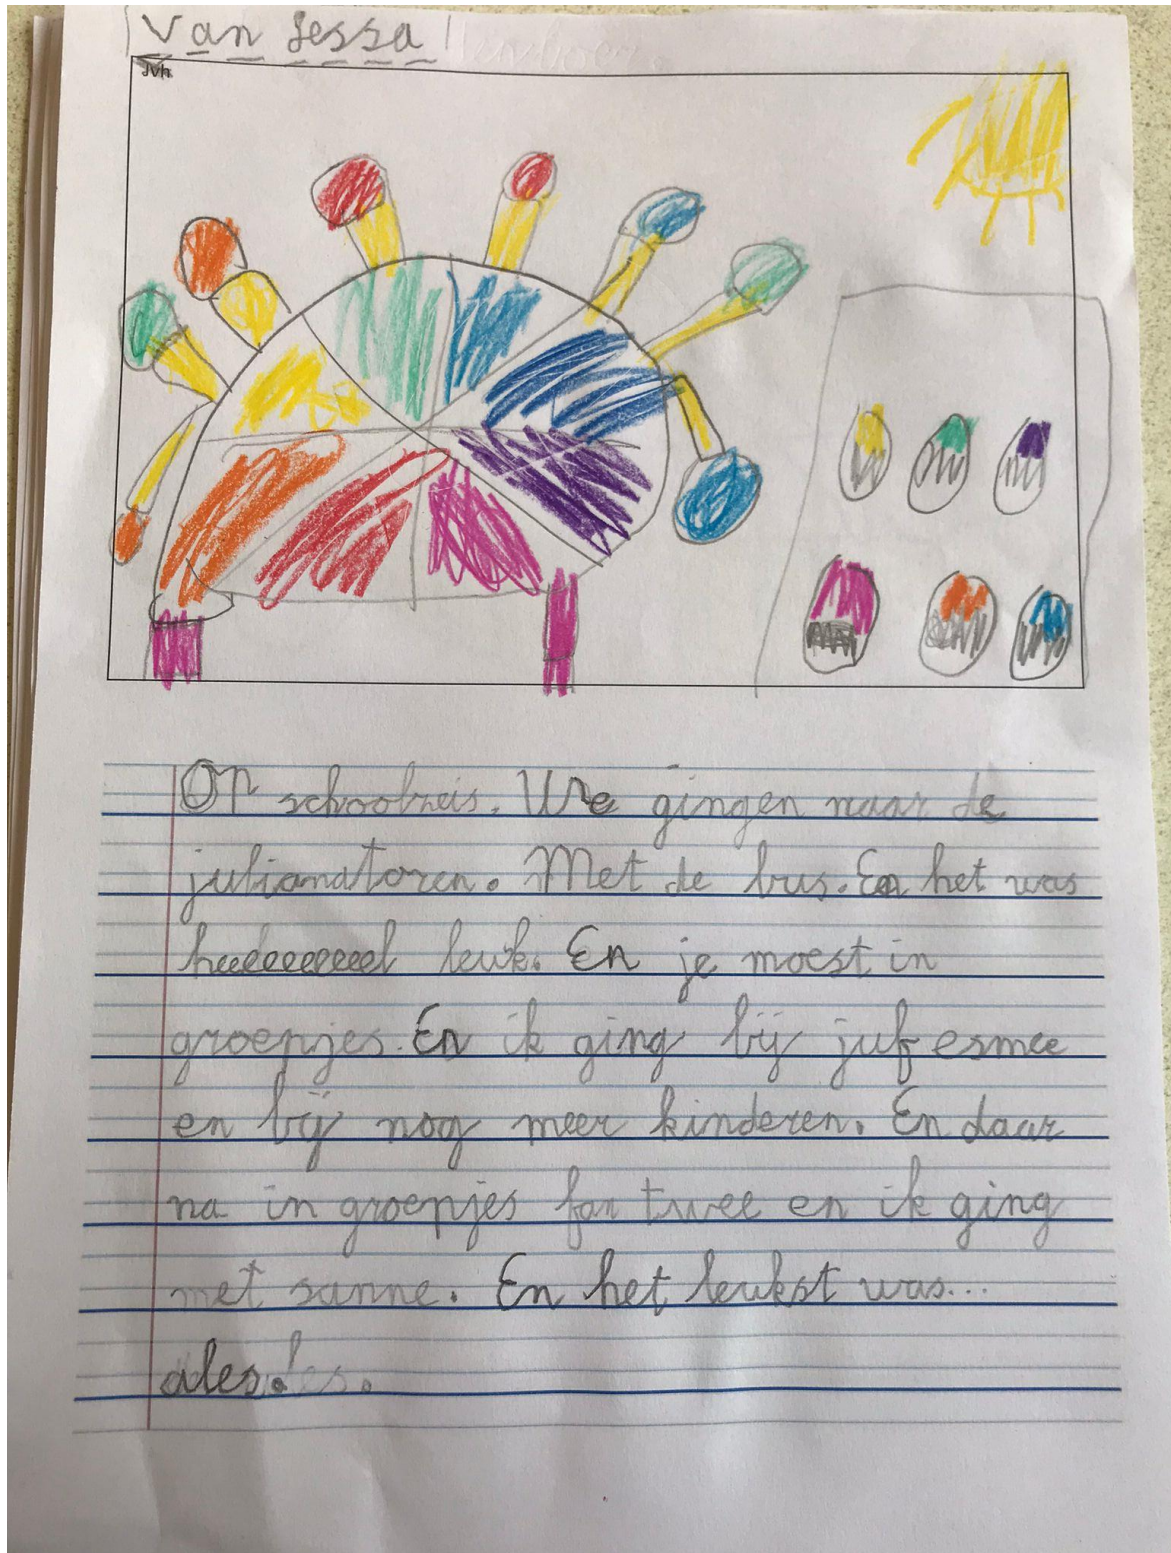 Van Jessa
JvH
Op schoolreis. We gingen naar de
julianatoren. Met de bus. En het was
heeleeeeeeel leuk. En je moest in
groepjes. En ik ging bij juf esmee
en bij nog meer kinderen. En daar
na in groepjes fan twee en ik ging
met sanne. En het leukst was...
ales.